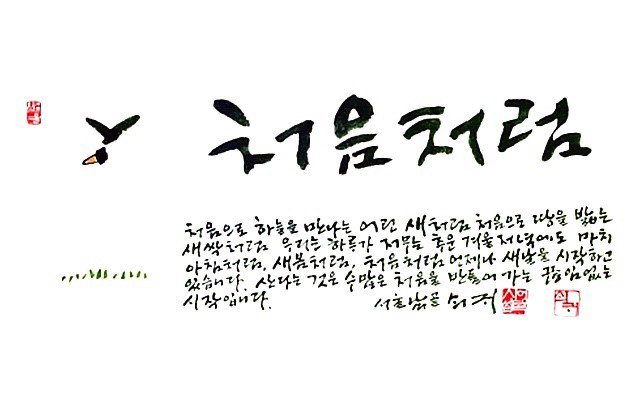 처음처럼
처음으로 하늘을 만나는 어린 새처럼 처음으로 땅을 밟는
새싹처럼 우리는 하루가 저무는 추운 겨울 저녁에도 마치
아침처럼, 새봄처럼, 처음처럼 언제나 새날을 시작하고
있습니다. 산다는 것은 수많은 처음을 만들어 가는 끊임없는
시작입니다.
서울남골 쇠귀